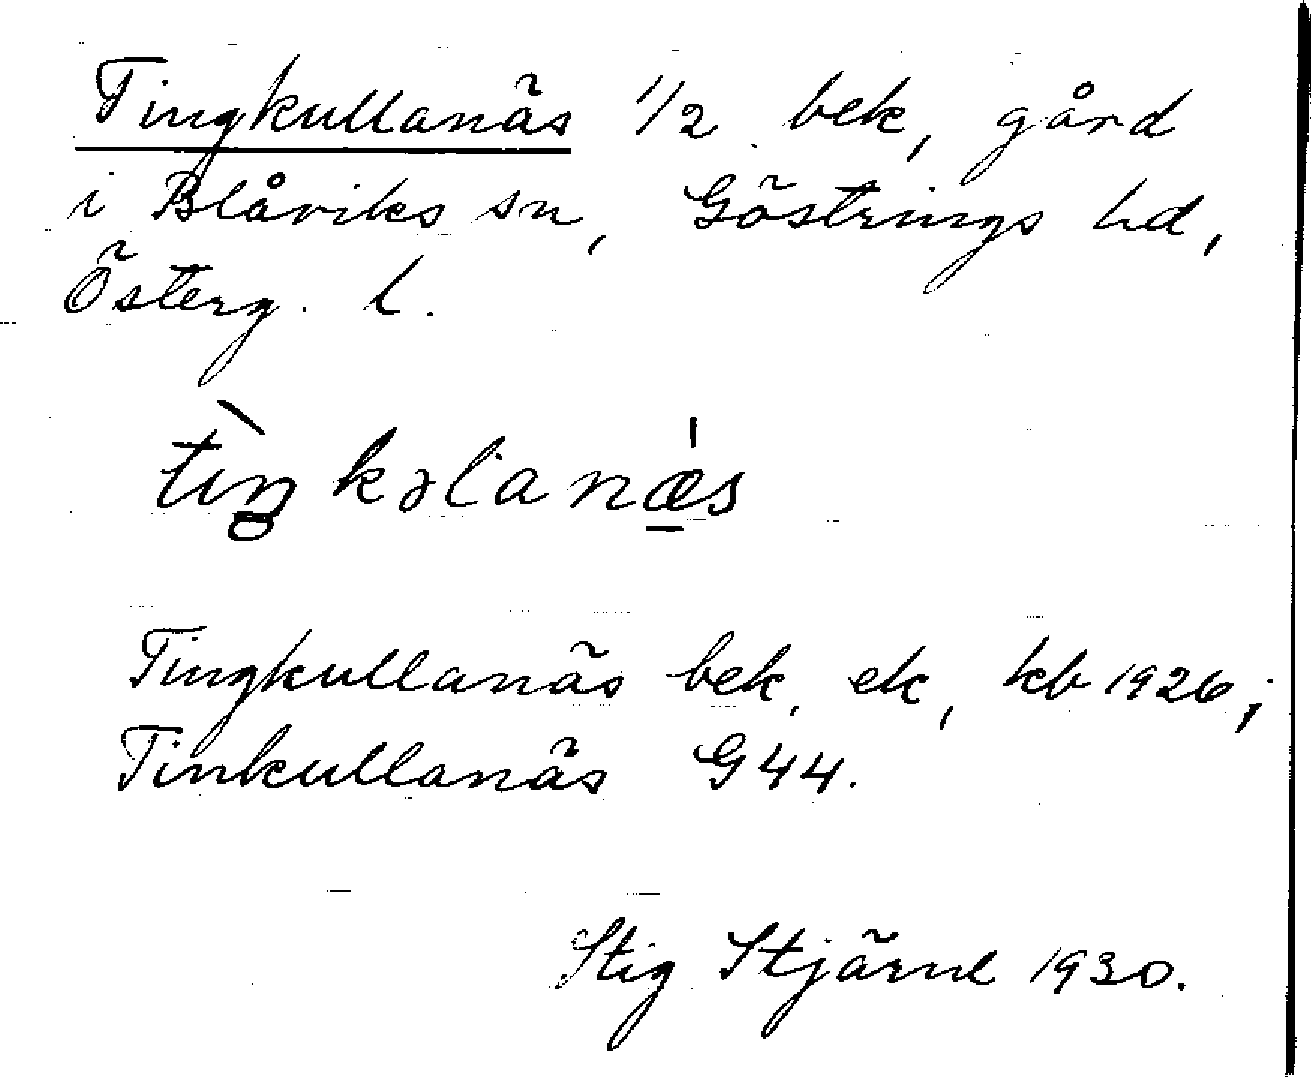 Tingkullanäs 1/2 bek, gård
i Blåviks sn, Göstrings hd,
Österg. l.
tìŋkəlanǽs
Tingkullanäs bek, ek, kb 1926;
Tinkullanäs G44.
Stig Stjärnl 1930.